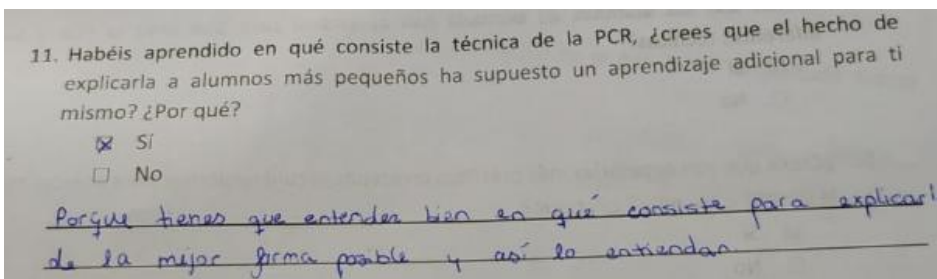 11. Habéis aprendido en qué consiste la técnica de la PCR, ¿crees que el hecho de
explicarla a alumnos más pequeños ha supuesto un aprendizaje adicional para ti
mismo? ¿Por qué?
Sí
No
Porque tienes que entender bien en qué consiste para explicarl
de la mejor forma posible y así lo entiendan